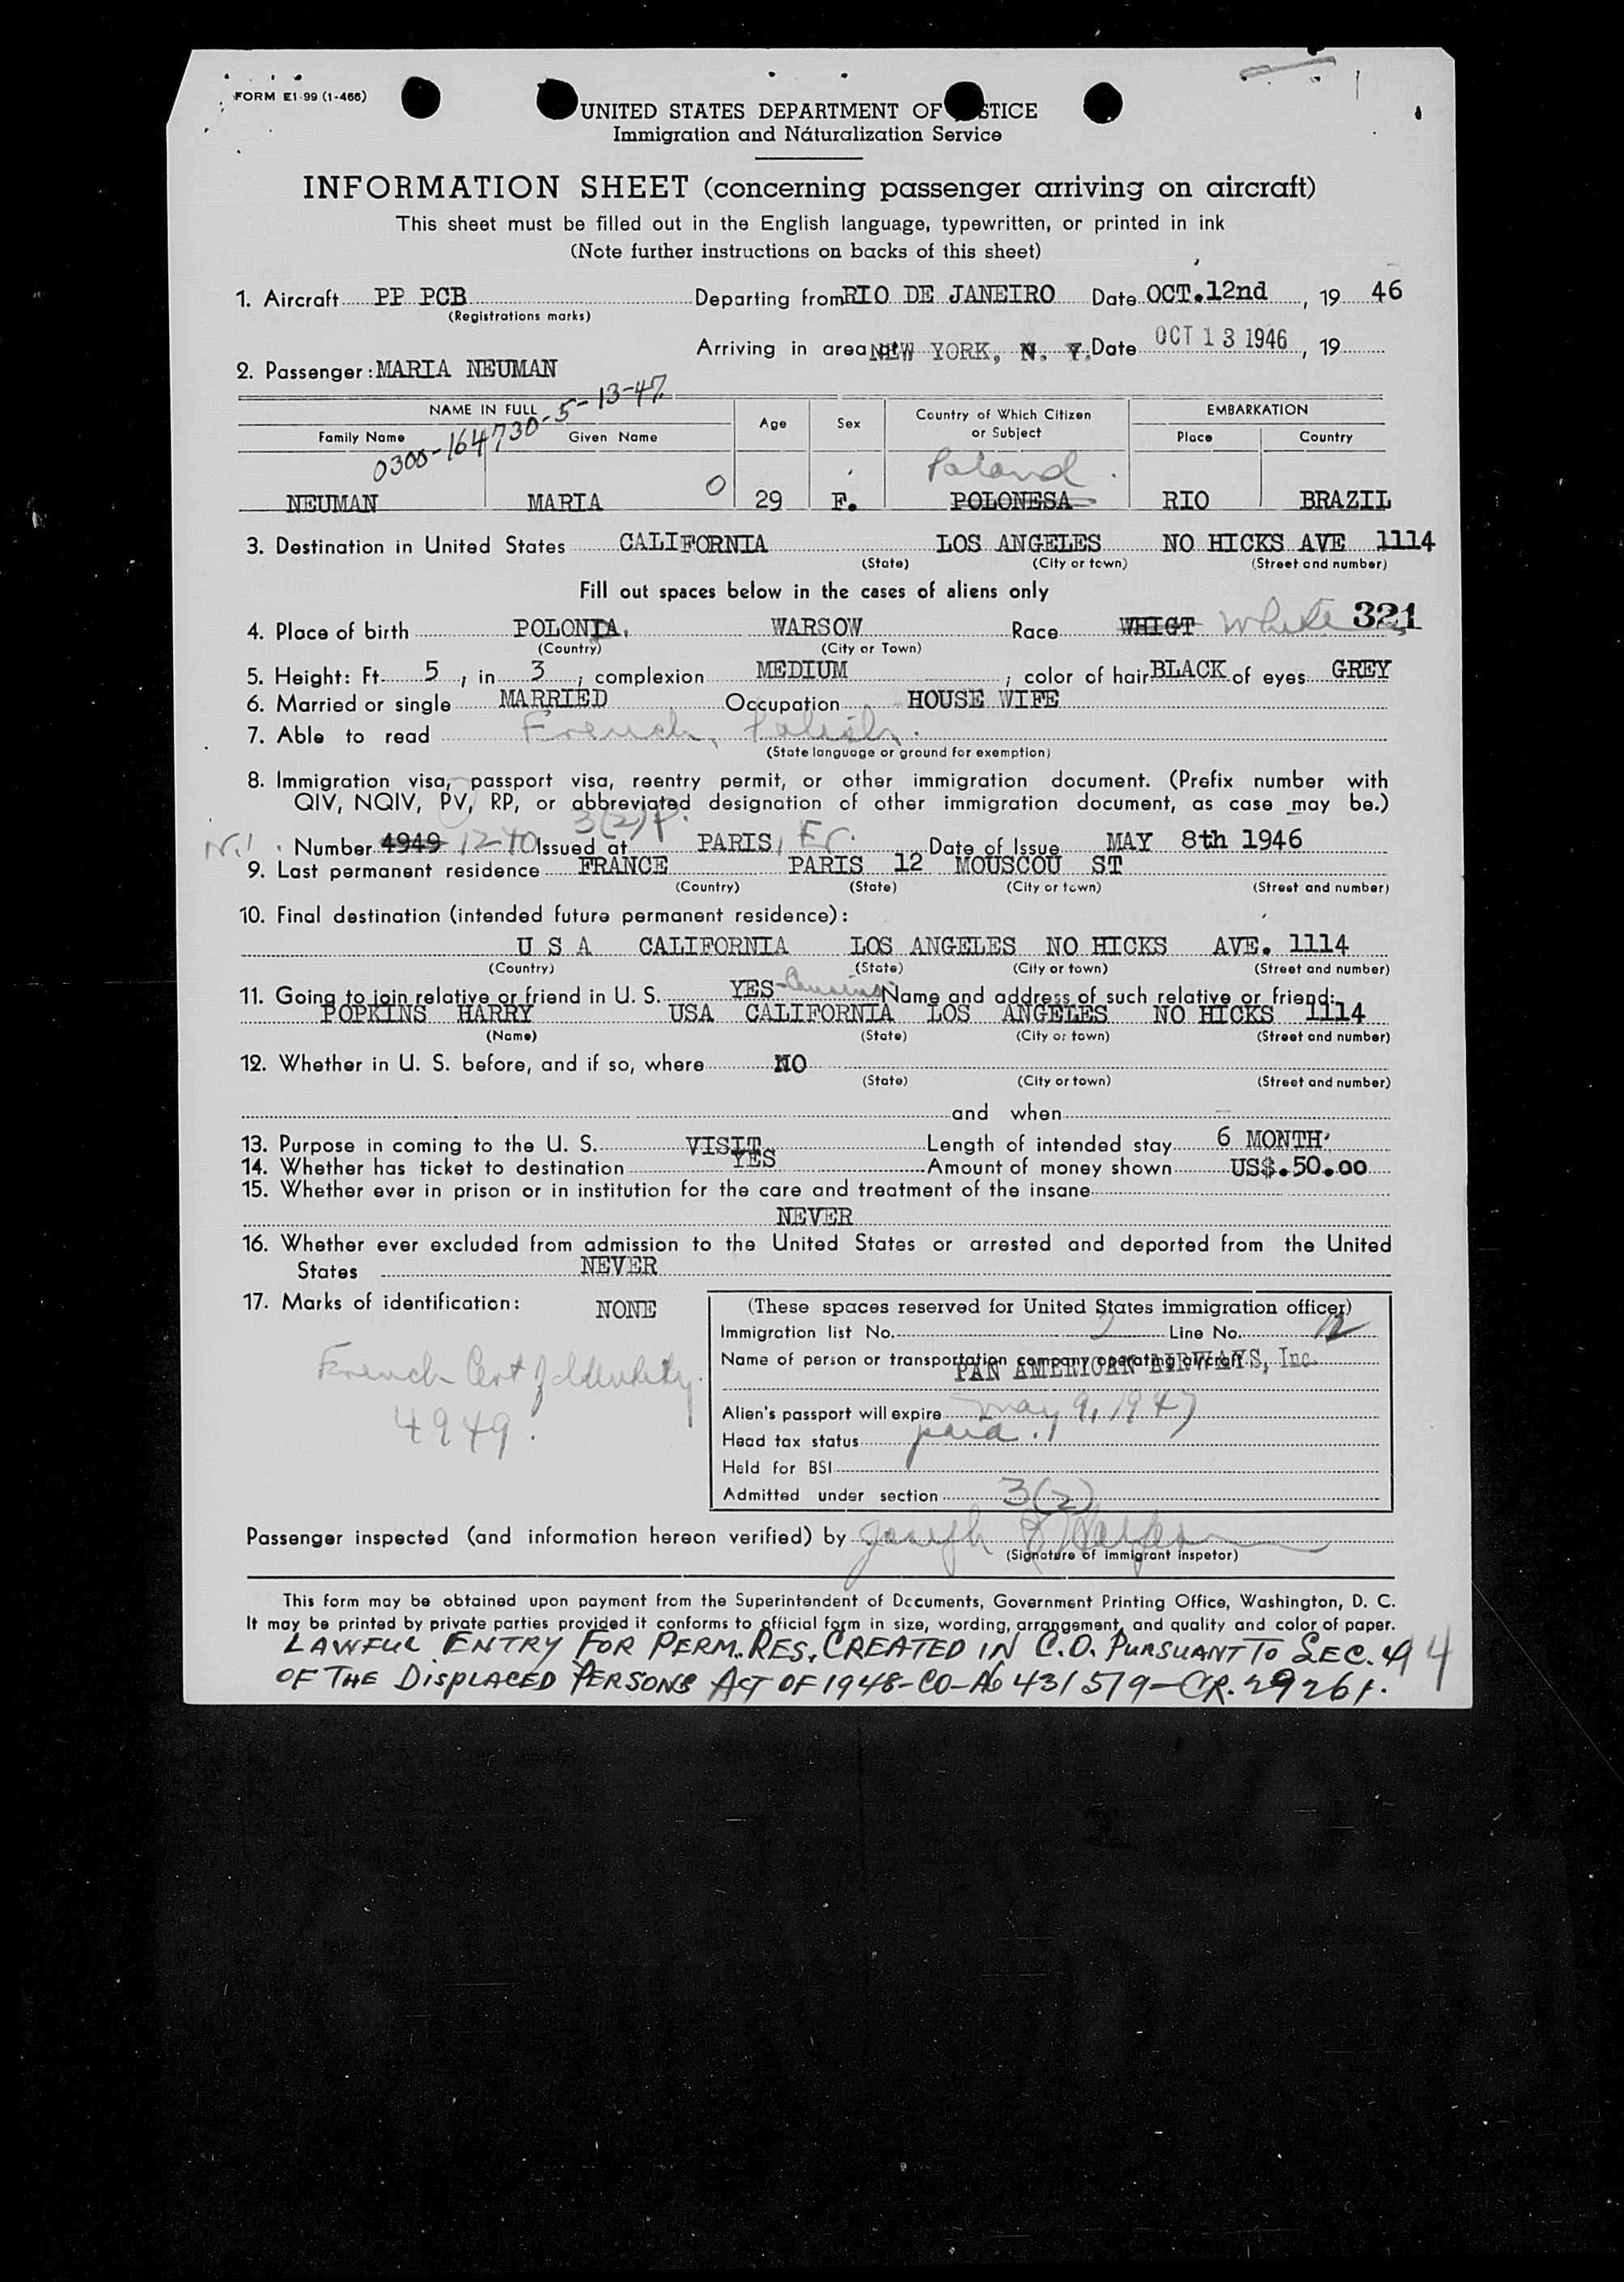 FORM E1-99 (1-466)
UNITED STATES DEPARTMENT OF STICE
Immigration and Naturalization Service
INFORMATION SHEET (concerning passenger arriving on aircraft)
This sheet must be filled out in the English language, typewritten, or printed in ink
(Note further instructions on backs of this sheet)
1. Aircraft PP PCB Departing from RIO DE JANEIRO Date OCT.12nd, 19 46
(Registrations marks)
Arriving in area of NEW YORK, N. Y. Date OCT 13 1946, 19
2. Passenger: MARIA NEUMAN
0300-164730-5-13-47
NAME IN FULL Age Sex Country of Which Citizen or Subject EMBARKATION
Family Name Given Name Place Country
Poland
NEUMAN MARIA 0 29 F. POLONESA RIO BRAZIL
3. Destination in United States CALIFORNIA LOS ANGELES NO HICKS AVE 1114
(State) (City or town) (Street and number)
Fill out spaces below in the cases of aliens only
321
4. Place of birth POLONIA. WARSOW Race WHIGT White
(Country) (City or Town)
5. Height: Ft. 5, in 3; complexion MEDIUM; color of hair BLACK of eyes GREY
6. Married or single MARRIED Occupation HOUSE WIFE
7. Able to read French, Polish.
(State language or ground for exemption)
8. Immigration visa, passport visa, reentry permit, or other immigration document. (Prefix number with
QIV, NQIV, PV, RP, or abbreviated designation of other immigration document, as case may be.)
3(2)P.
Number 4949 1270 Issued at PARIS, Fr. Date of Issue MAY 8th 1946
9. Last permanent residence FRANCE PARIS 12 MOUSCOU ST
(Country) (State) (City or town) (Street and number)
10. Final destination (intended future permanent residence):
U S A CALIFORNIA LOS ANGELES NO HICKS AVE. 1114
(Country) (State) (City or town) (Street and number)
11. Going to join relative or friend in U. S. YES - Cousins Name and address of such relative or friend:
POPKINS HARRY USA CALIFORNIA LOS ANGELES NO HICKS 1114
(Name) (State) (City or town) (Street and number)
12. Whether in U. S. before, and if so, where NO
(State) (City or town) (Street and number)
and when
13. Purpose in coming to the U. S. VISIT Length of intended stay 6 MONTH
14. Whether has ticket to destination YES Amount of money shown US$.50.00
15. Whether ever in prison or in institution for the care and treatment of the insane
NEVER
16. Whether ever excluded from admission to the United States or arrested and deported from the United
States NEVER
17. Marks of identification: NONE
French Cert of Identity.
4949.
(These spaces reserved for United States immigration officer)
Immigration list No. 2 Line No. 12
Name of person or transportation company operating aircraft
PAN AMERICAN AIRWAYS, Inc.
Alien's passport will expire May 9, 1947
Head tax status paid.
Held for BSI
Admitted under section 3(2)
Passenger inspected (and information hereon verified) by Joseph
(Signature of immigrant inspetor)
This form may be obtained upon payment from the Superintendent of Documents, Government Printing Office, Washington, D. C.
It may be printed by private parties provided it conforms to official form in size, wording, arrangement, and quality and color of paper.
LAWFUL ENTRY FOR PERM. RES. CREATED IN C.O. PURSUANT TO SEC. 4
OF THE DISPLACED PERSONS ACT OF 1948-CO-A6431519-CR.29261.